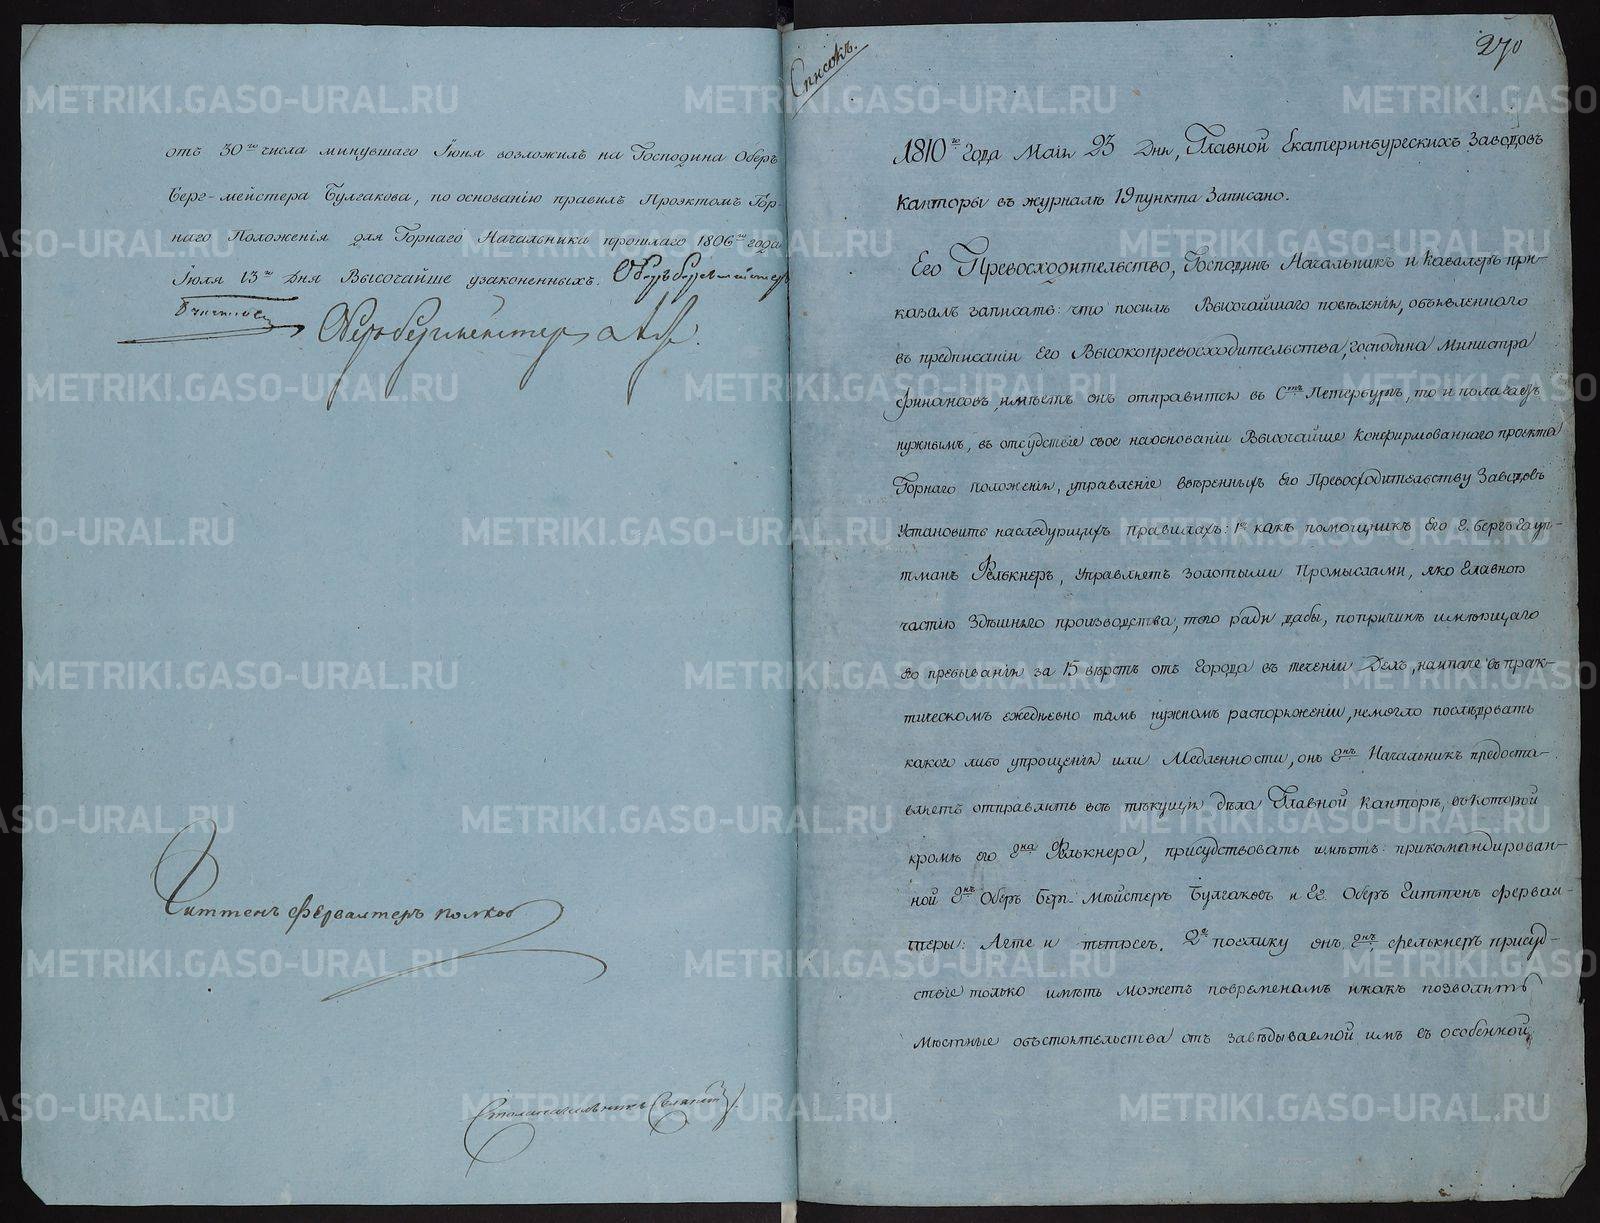 отъ 30го числа минувшаго Іюня возложилъ на Господина Оберъ
Берг-мейстера Булгакова, по основанію правилъ Проэктомъ Гор-
наго Положенія для Горнаго Начальника прошлаго 1806го года
Іюля 13го Дня Высочайше узаконенныхъ. Оберъ бергмейстеръ
Булгаковъ
Обербергмейстеръ
Гиттенъ Ферваltеръ
Столоначальникъ
Списокъ.
270
1810го Года Маія 23 Дня, Главной Екатеринбургскихъ Заводовъ
Канторы въ журналѣ 19 пункта Записано.
Его Превосходительство, Господинъ Начальникъ и Кавалеръ при-
казалъ записать: что посилѣ Высочайшаго повѣленія, объявленнаго
въ предписаніи Его Высокопревосходительства, господина Министра
Финансовъ, имѣетъ онъ отправится въ Стъ Петербургъ, то и полагаетъ
нужнымъ, въ отсудствіе свое наоснованіи Высочайше Конфирмованнаго проекта
Горнаго положенія, управленіе ввѣренныхъ Его Превосходительству Заводовъ
Установить наследующихъ правилахъ: 1е какъ помощникъ Его Г. бергъ Гаупт-
тманъ Фелькнеръ, Управляетъ золотыми Промыслами, яко Главною
частію Здѣшняго производства, того ради дабы, попричинѣ имѣющаго
его пребыванія за 15 вѣрстъ отъ Города въ теченіи Делъ, наипаче въ прак-
тическомъ ежедневно тамъ нужномъ распоряженіи, немогло послѣдовать
какого либо упрощенія или Медленности, онъ Гднъ Начальникъ предоста-
вляетъ отправлять всѣ тѣкущія дѣла Главной Канторѣ, въ которой
кромѣ его Гдна Фелькнера, присудствовать имѣютъ: прикомандирован-
ной Гднъ Оберъ Берг-Мейстеръ Булгаковъ и Гг. Оберъ Гиттенъ Фервал-
теры: Агте и Тетрсъ. 2е поелику онъ Гднъ Фелькнеръ присуд-
ствіе только имѣть можетъ повременамъ икакъ позволятъ
Мѣстные обстоятельства отъ завѣдываемой имъ въ особенной